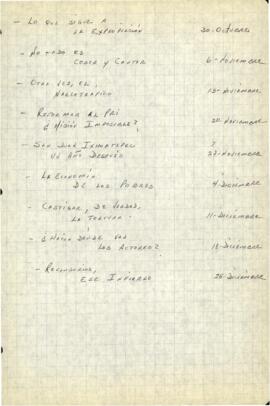 - LO QUE SIGUE A
LA EXPROPIACIÓN 30-OCTUBRE
- NO TODO ES
COSER Y CANTAR 6-NOVIEMBRE
- OTRA VEZ, EL
NARCOTRAFICO 13-NOVIEMBRE
- REFORMAR AL PRI
¿MISIÓN IMPOSIBLE? 20-NOVIEMBRE
- SAN JUAN IXHUATEPEC
UN AÑO DESPUÉS 27-NOVIEMBRE
- LA ECONOMÍA
DE LOS POBRES 4-DICIEMBRE
- CASTIGAR, DE VERDAD,
LA TORTURA 11-DICIEMBRE
- ¿HACIA DÓNDE VAN
LOS ACTORES? 18-DICIEMBRE
-
ESE INFIERNO 25-DICIEMBRE